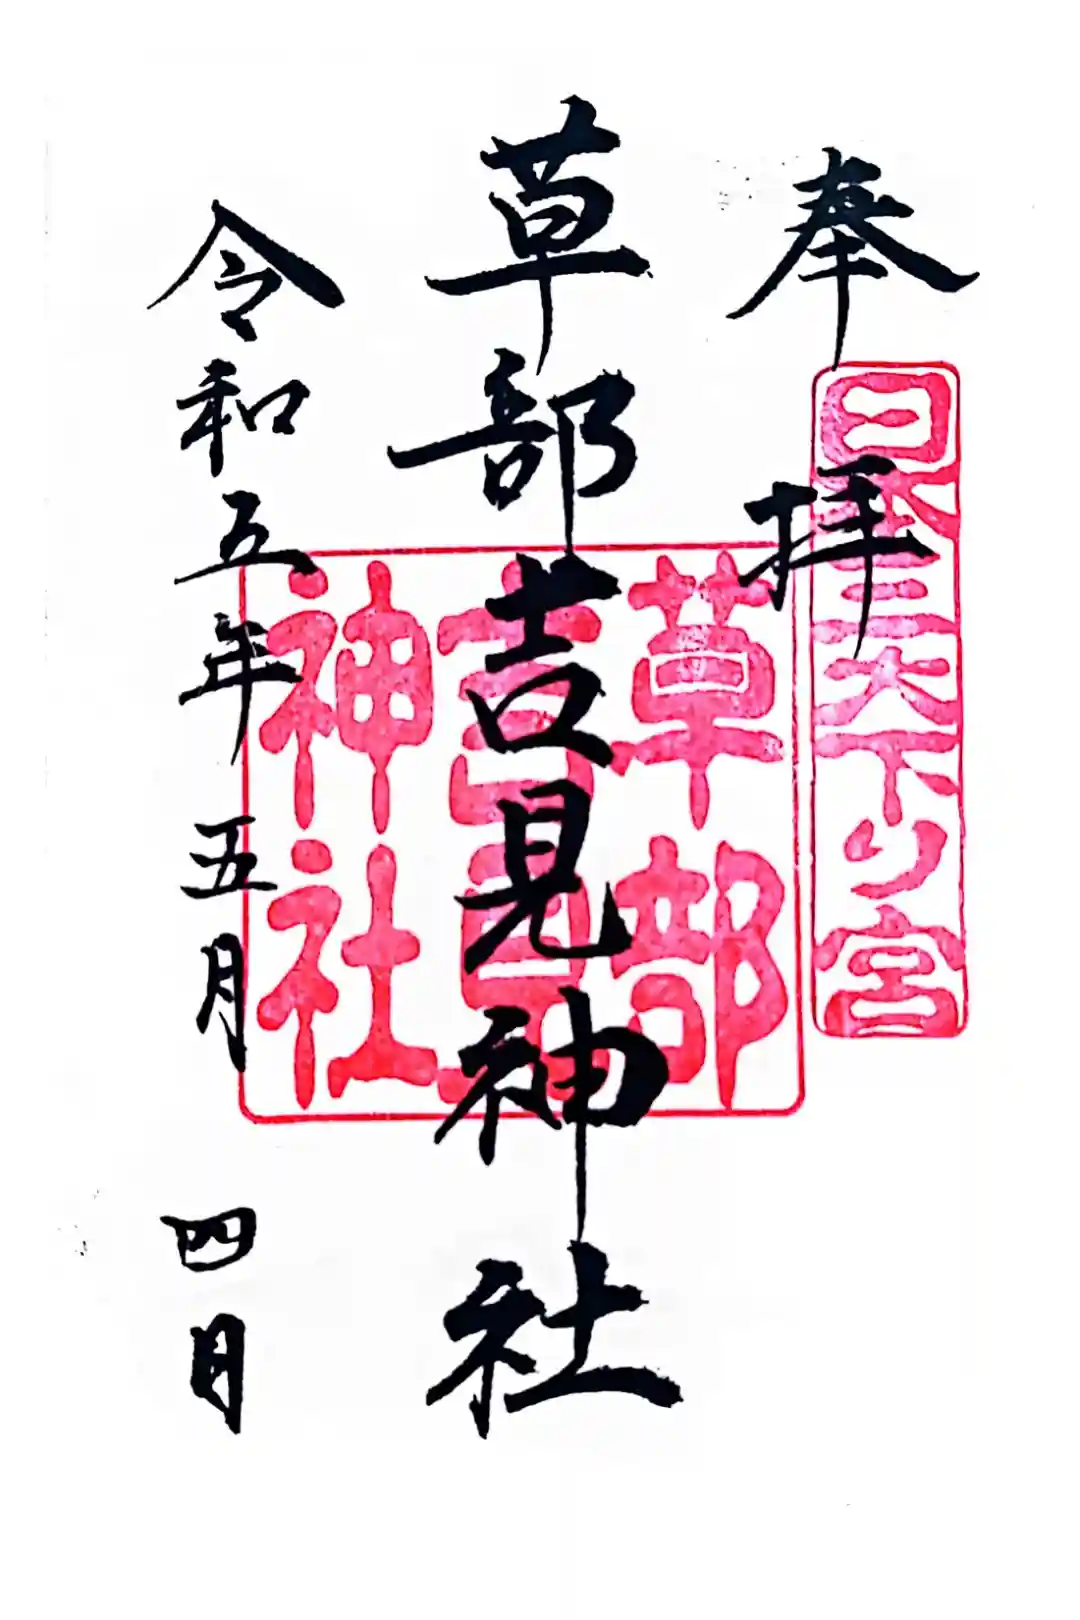 奉拝
日本三大下り宮
草部吉見神社
草部
吉見
神社
令和五年五月四日